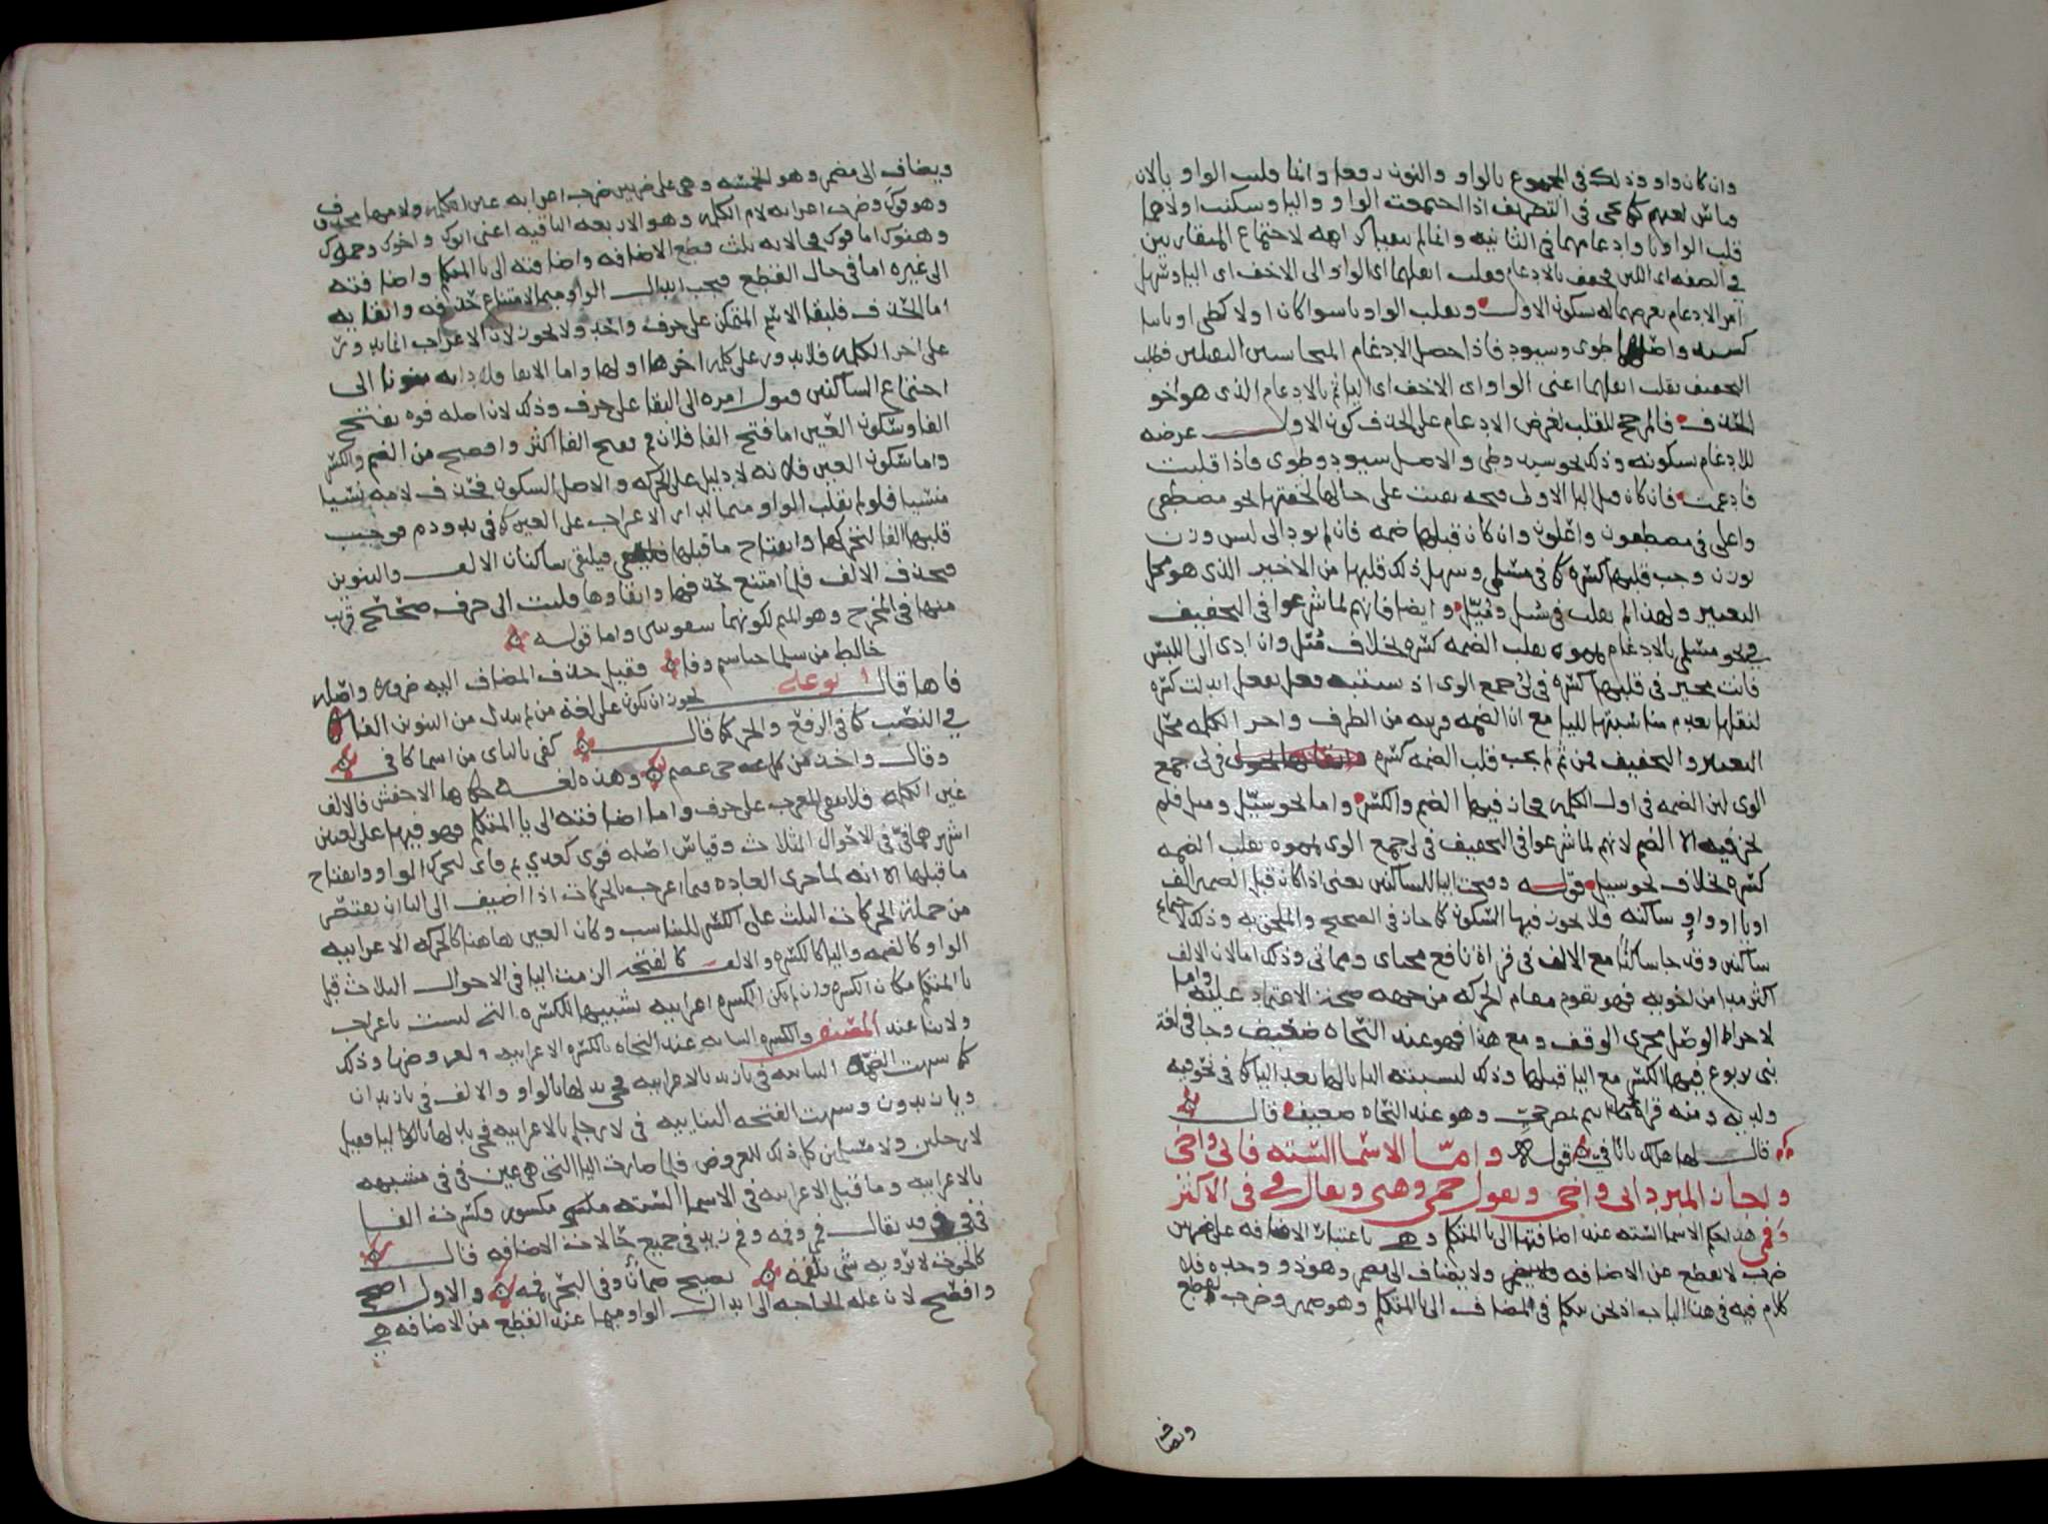 وان كان واو وذلك في المجموع بالواو والنون رفعا وانما قلبت الواو يا لان
قياس لغتهم كما يجي في التصريف اذا اجتمعت الواو واليا وسكنت اولاهما
قلب الواو يا وادغامهما في الثانيه وانما لم كراهه لاجتماع المتقاربين
في الصفه اى اللين فخفف بالادغام فقلب اثقلهما اى الواو الى الاخف اى اليا وسهل
امر الادغام بعرضهما له سكون الاول وتقلب الواو يا سوا كان اولا كطى او ثانيا
كسيد واصلهما طوى وسيود فاذا حصل الادغام
التخفيف بقلب اثقلهما اعنى الواو اى الاخف اى اليا ثم بالادغام الذى هو اخو
الحذف فالمرجح للقلب لغرض الادغام على الحذف كون الاول عرضه
للادغام بسكونه وذلك نحو سيد وطى والاصل سيود وطوى فاذا قلبت
فادغمت فان كان قبل اليا الاولى فتحه بقيت على حالها لخفتها نحو مصطفى
واعلى في مصطفون واعلون وان كان قبلها ضمه فان لم يود الى لبس وزن
بوزن وجب قلبها كسره كما في مسلمى وسهل ذلك قلبها من الاخير الذى هو محل
التغيير ولهذا لم يقلب في سيل وميل وايضا فانهم لما شرعوا في التخفيف
في نحو مسلمى بالادغام تمموه بقلب الضمه كسره بخلاف قيل وان ادى الى اللبس
فانت مخير في قلبها كسره في لى جمع الوى اذ ابدلت كسره
لثقلها بعدم مناسبتها لليا مع ان الضمه قريبه من الطرف واخر الكلمه محل
التغيير والتخفيف فمن ثم لم يجب قلب الضمه كسره في لى جمع
الوى لان الضمه في اول الكلمه فجاز فيها الضم والكسر واما نحو سيل وميل فلم
يجز فيه الا الضم لانهم لما شرعوا في التخفيف في لى جمع الوى تمموه بقلب الضمه
كسره بخلاف نحو سيل قوله وفتحت اليا للساكنين يعنى اذا كان قبل الضمير الف
او يا او واو ساكنه فلا يجوز فيها السكون كما جاز في الصحيح والملحق به وذلك لاجتماع
ساكنين وقد جا ساكنا مع الالف في قراة نافع محياى ومماتى وذلك اما لان الالف
اكثر مدا من اخويه فهو يقوم مقام الحركه من جهه صحه الاعتماد عليه واما
لاجرا الوصل مجرى الوقف ومع هذا فهو عند النحاه ضعيف وجا في لغة
بنى يربوع فيها الكسر مع اليا قبلها وذلك لتشبيه اليا بالها بعد اليا كما في نحو فيه
ولديه ومنه قراة بمصرخي وهو عند النحاه ضعيف قال
قال لها هل لك يا تا في قوله واما الاسما السته فابى واخى
واجاز المبرد ابى واخى وتقول حمى وهنى ويقال في في الاكثر
وفمى هذا حكم الاسما السته عند اضافتها الى يا المتكلم وهى باعتبار الاضافه على ضربين
ضرب لا يقطع عن الاضافه ولا يضاف الى مضمر وهو ذو وحده فلا
كلام فيه في هذا الباب اذ نحن نتكلم في المضاف الى يا المتكلم وهو ضمير وضرب يقطع
ويضاف
ويضاف الى مضمر وهو الخمسه وهى على ضربين ضرب اعرابه عين الكلمه ولامها محذوف
وهو فوك وضرب اعرابه لام الكلمه وهو الاربعه الباقيه اعنى ابوك واخوك وحموك
وهنوك اما فوك فحالاته ثلث قطع الاضافه واضافته الى يا المتكلم واضافته
الى غيره اما في حال القطع فيجب ابدال الواو ميما لامتناع حذفه وابقايه
اما الحذف فلبقا الاسم المتمكن على حرف واحد ولا يجوز لان الاعراب انما يدور
على اخر الكلمه فلا يدور على كلمه اخرها اولها واما الابقا فلادايه منونا الى
اجتماع الساكنين فيول امره الى البقا على حرف وذلك لان اصله فوه بفتح
الفا وسكون العين اما فتح الفا فلان فم بفتح الفا اكثر وافصح من الضم والكسر
واما سكون العين فلانه لا دليل على الحركه والاصل السكون فحذف لامه نسيا
منسيا فلو لم يقلب الواو ميما لدار الاعراب على العين كما في يد ودم فوجب
قلبها الفا لتحركها وانفتاح ما قبلها فيلتقى ساكنان الالف والتنوين
فيحذف الالف فلما امتنع حذفها وابقاوها قلبت الى حرف صحيح قريب
منها في المخرج وهو الميم لكونهما شفويين واما قوله
خالط من سلمى خياشيم وفا فقيل حذف المضاف اليه ضروره واصله
فاها قال ابو علي يجوز ان يكون على لغة من لم يبدل من التنوين الفا
في النصب كما في الرفع والجر كما قال كفى بالناى من اسما كافى
وقال واخذ من كل حى عصم وهذه لغه حكاها الاخفش فالالف
عين الكلمه فلا يبقى المعرب على حرف واما اضافته الى يا المتكلم فهو فيها على لغتين
اشهرهما في في الاحوال الثلاث وقياس اصله فوى كغدى ثم فاى لتحرك الواو وانفتاح
ما قبلها الا انه لما جرى العاده فيما اعرب بالحركات اذا اضيف الى اليا ان يقتصر
من جملة الحركات الثلث على الكسر للتناسب وكان العين هاهنا كالحركه الاعرابيه
الواو كالضمه واليا كالكسره والالف كالفتحه الزمت اليا في الاحوال الثلاث قبل
يا المتكلم مكان الكسره وان لم تكن الكسره اعرابيه تشبيها للكسره التى ليست باعراب
ولا بنا عند المصنف والكسره البنائيه عند النحاه بالكسره الاعرابيه لعروضها وذلك
كما شبهت الضمه البنائيه في يا زيد بالاعرابيه فجى بدلها بالواو والالف في يا زيدان
ويا زيدون وشبهت الفتحه البنايه في لا رجل بالاعرابيه فجى بدلها باليا فقيل
لا رجلين ولا مسلمين كل ذلك للعروض فلما صارت اليا التى هى عين في في مشبهه
بالاعرابيه وما قبل الاعرابيه في الاسما السته مكسور كسرت الفا
في في وقد يقال فمى وفمه وفم زيد في جميع حالات الاضافه قال
كالحوت لا يرويه شى يلقمه يصبح ظمآن وفى البحر فمه والاول اصح
وافصح لان علة الحاجه الى ابدال الواو ميما عند القطع من الاضافه هى